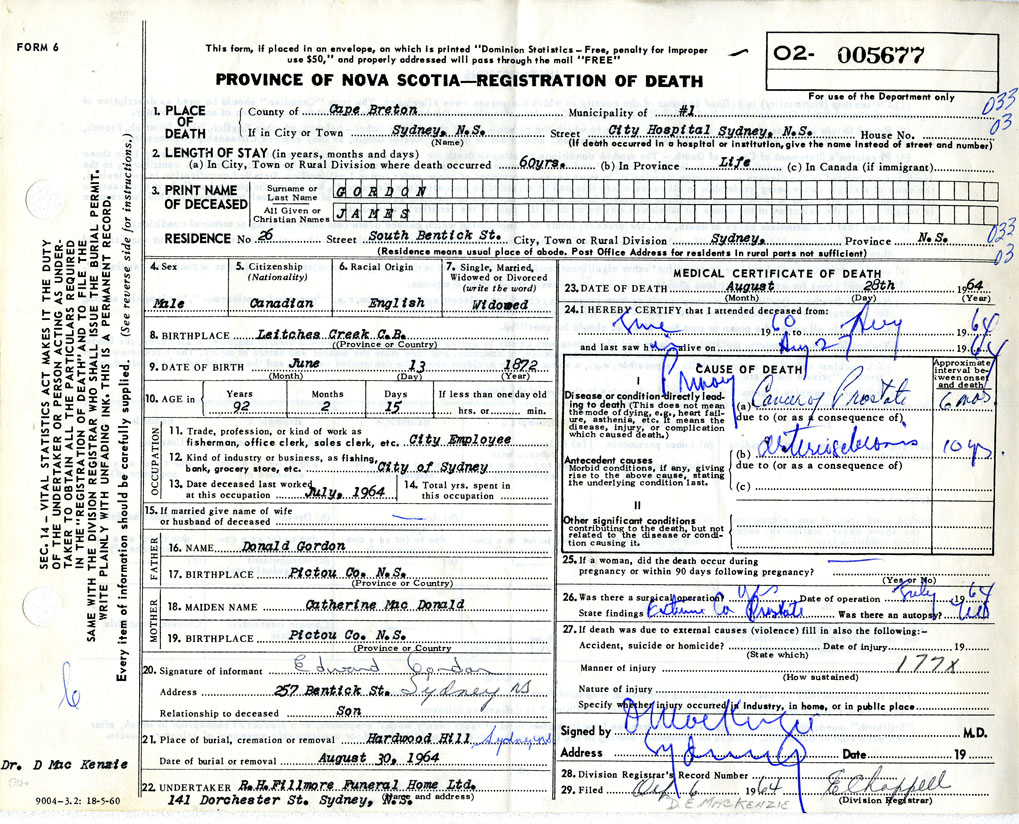 FORM 6
This form, if placed in an envelope, on which is printed "Dominion Statistics – Free, penalty for improper
use $50," and properly addressed will pass through the mail "FREE"
PROVINCE OF NOVA SCOTIA—REGISTRATION OF DEATH
02- 005677
For use of the Department only
033
03
1. PLACE OF DEATH
County of Cape Breton Municipality of #1
If in City or Town Sydney, N.S. Street City Hospital Sydney, N.S. House No.
(Name) (If death occurred in a hospital or institution, give the name instead of street and number)
2. LENGTH OF STAY (in years, months and days)
(a) In City, Town or Rural Division where death occurred 60yrs. (b) In Province Life (c) In Canada (if immigrant)
3. PRINT NAME OF DECEASED
Surname or Last Name GORDON
All Given or Christian Names JAMES
RESIDENCE No 26 Street South Bentick St. City, Town or Rural Division Sydney, Province N.S.
(Residence means usual place of abode. Post Office Address for residents in rural parts not sufficient)
033
03
4. Sex
Male
5. Citizenship (Nationality)
Canadian
6. Racial Origin
English
7. Single, Married, Widowed or Divorced (write the word)
Widowed
8. BIRTHPLACE Leitches Creek C.B.
(Province or Country)
9. DATE OF BIRTH June 13 1872
(Month) (Day) (Year)
10. AGE in
Years Months Days If less than one day old
92 2 15 hrs. or min.
OCCUPATION
11. Trade, profession, or kind of work as
fisherman, office clerk, sales clerk, etc. City Employee
12. Kind of industry or business, as fishing,
bank, grocery store, etc. City of Sydney
13. Date deceased last worked
at this occupation July, 1964
14. Total yrs. spent in
this occupation
15. If married give name of wife
or husband of deceased —
FATHER
16. NAME Donald Gordon
17. BIRTHPLACE Pictou Co. N.S.
(Province or Country)
MOTHER
18. MAIDEN NAME Catherine Mac Donald
19. BIRTHPLACE Pictou Co. N.S.
(Province or Country)
20. Signature of informant Edward Gordon
Address 257 Bentick St. Sydney NS
Relationship to deceased Son
21. Place of burial, cremation or removal Hardwood Hill Sydney
Date of burial or removal August 30, 1964
22. UNDERTAKER R.H.Fillmore Funeral Home Ltd.
141 Dorchester St. Sydney, N.S.
(Name and address)
MEDICAL CERTIFICATE OF DEATH
23. DATE OF DEATH August 28th 1964
(Month) (Day) (Year)
24. I HEREBY CERTIFY that I attended deceased from:
June 1960 to Aug 1964
and last saw him alive on Aug 27 1964
CAUSE OF DEATH
Approximate interval between onset and death
I
Primary
Disease or condition directly leading to death (This does not mean
the mode of dying, e.g., heart failure, asthenia, etc. It means the
disease, injury, or complication
which caused death.)
(a) Cancer of Prostate 6 mos
due to (or as a consequence of)
(b) arteriosclerosis 10 yrs.
due to (or as a consequence of)
(c)
Antecedent causes
Morbid conditions, if any, giving
rise to the above cause, stating
the underlying condition last.
II
Other significant conditions
contributing to the death, but not
related to the disease or condition causing it.
25. If a woman, did the death occur during
pregnancy or within 90 days following pregnancy?
(Yes or No)
26. Was there a surgical operation? yes Date of operation July 1964
State findings Extensive Ca Prostate Was there an autopsy?
27. If death was due to external causes (violence) fill in also the following:–
Accident, suicide or homicide? Date of injury 19
(State which)
Manner of injury 177X
(How sustained)
Nature of injury
Specify whether injury occurred in industry, in home, or in public place
Signed by D MacKenzie M.D.
Address Sydney Date 19
28. Division Registrar's Record Number
29. Filed 6 1964 E Chappell
(Division Registrar)
D.E. MACKENZIE
SEC. 14 – VITAL STATISTICS ACT MAKES IT THE DUTY
OF THE UNDERTAKER OR PERSON ACTING AS UNDER-
TAKER TO OBTAIN ALL THE PARTICULARS REQUIRED
IN THE "REGISTRATION OF DEATH" AND TO FILE THE
SAME WITH THE DIVISION REGISTRAR WHO SHALL ISSUE THE BURIAL PERMIT.
WRITE PLAINLY WITH UNFADING INK. THIS IS A PERMANENT RECORD.
Every item of information should be carefully supplied. (See reverse side for instructions.)
6
Dr. D Mac Kenzie
9004-3.2: 18-5-60